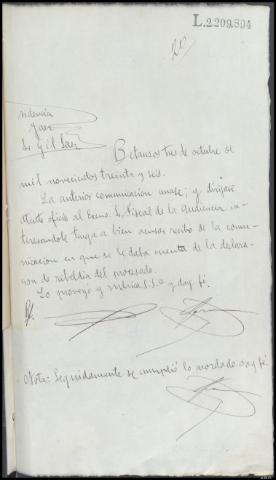 L.2209,804
20
Providencia
Juez
Sr. Gil Saez
Betanzos tres de octubre de
mil novecientos treinta y seis.
La anterior comunicacion unase; y dirijase
atento oficio al Excmo. Sr. Fiscal de la Audiencia in-
teresandole tenga a bien acusar recibo de la comu-
nicacion en que se le daba cuenta de la declara-
cion de rebeldia del procesado.
Lo proveyo y rubrica S.S.ª y doy fé.
Nota: Seguidamente se cumplió lo acordado doy fé.